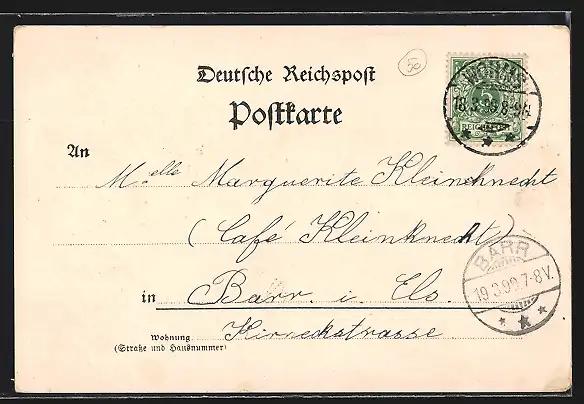 50
Deutsche Reichspost
Postkarte
WORMS
18.3.99.8-9N
5
REICHSPOST
An
Melle Marguerite Kleinknecht
(Café Kleinknecht)
BARR
19.3.99.7-8V.
in Barr i. Els.
Kirneckstrasse
Wohnung
(Straße und Hausnummer)